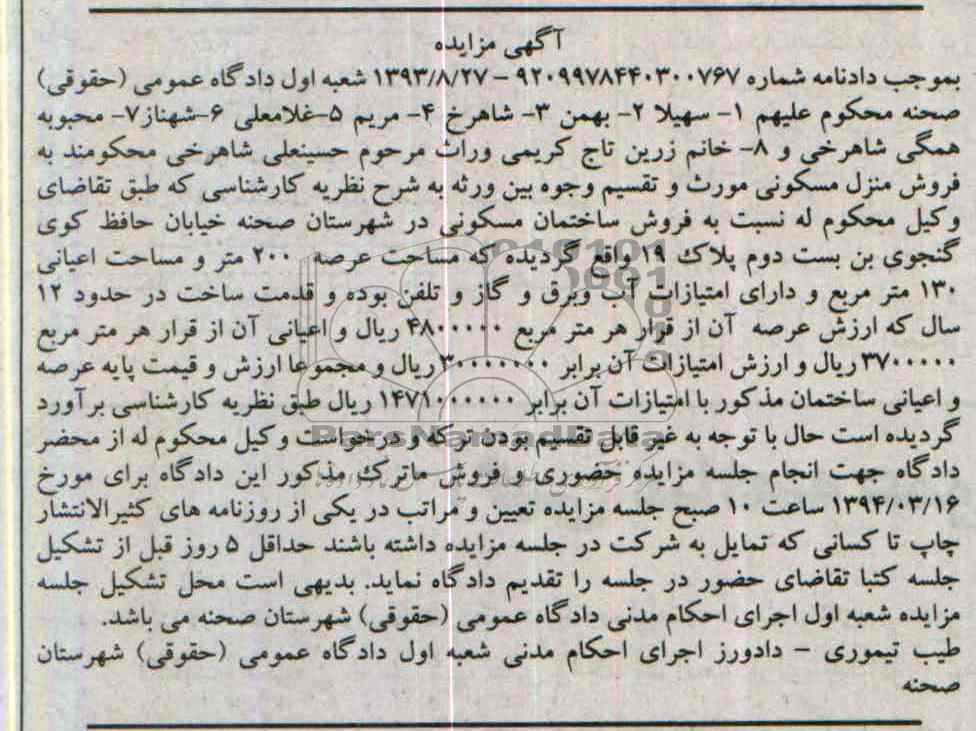 آگهی مزایده
بموجب دادنامه شماره ۹۲۰۹۹۷۸۴۴۰۳۰۰۷۶۷ – ۱۳۹۳/۸/۲۷ شعبه اول دادگاه عمومی (حقوقی)
صحنه محکوم علیهم ۱- سهیلا ۲- بهمن ۳- شاهرخ ۴- مریم ۵-غلامعلی ۶-شهناز۷- محبوبه
همگی شاهرخی و ۸- خانم زرین تاج کریمی وراث مرحوم حسینعلی شاهرخی محکومند به
فروش منزل مسکونی مورث و تقسیم وجوه بین ورثه به شرح نظریه کارشناسی که طبق تقاضای
وکیل محکوم له نسبت به فروش ساختمان مسکونی در شهرستان صحنه خیابان حافظ کوی
گنجوی بن بست دوم پلاک ۱۹ واقع گردیده که مساحت عرصه ۲۰۰ متر و مساحت اعیانی
۱۳۰ متر مربع و دارای امتیازات آب وبرق و گاز و تلفن بوده و قدمت ساخت در حدود ۱۲
سال که ارزش عرصه آن از قرار هر متر مربع ۴۸۰۰۰۰۰ ریال و اعیانی آن از قرار هر متر مربع
۳۷۰۰۰۰۰ ریال و ارزش امتیازات آن برابر ۳۰۰۰۰۰۰۰ ریال و مجموعا ارزش و قیمت پایه عرصه
و اعیانی ساختمان مذکور با امتیازات آن برابر ۱۴۷۱۰۰۰۰۰۰ ریال طبق نظریه کارشناسی برآورد
گردیده است حال با توجه به غیر قابل تقسیم بودن ترکه و درخواست وکیل محکوم له از محضر
دادگاه جهت انجام جلسه مزایده حضوری و فروش ماترک مذکور این دادگاه برای مورخ
۱۳۹۴/۰۳/۱۶ ساعت ۱۰ صبح جلسه مزایده تعیین و مراتب در یکی از روزنامه های کثیرالانتشار
چاپ تا کسانی که تمایل به شرکت در جلسه مزایده داشته باشند حداقل ۵ روز قبل از تشکیل
جلسه کتبا تقاضای حضور در جلسه را تقدیم دادگاه نماید. بدیهی است محل تشکیل جلسه
مزایده شعبه اول اجرای احکام مدنی دادگاه عمومی (حقوقی) شهرستان صحنه می باشد.
طیب تیموری – دادورز اجرای احکام مدنی شعبه اول دادگاه عمومی (حقوقی) شهرستان
صحنه
ParsNamadData